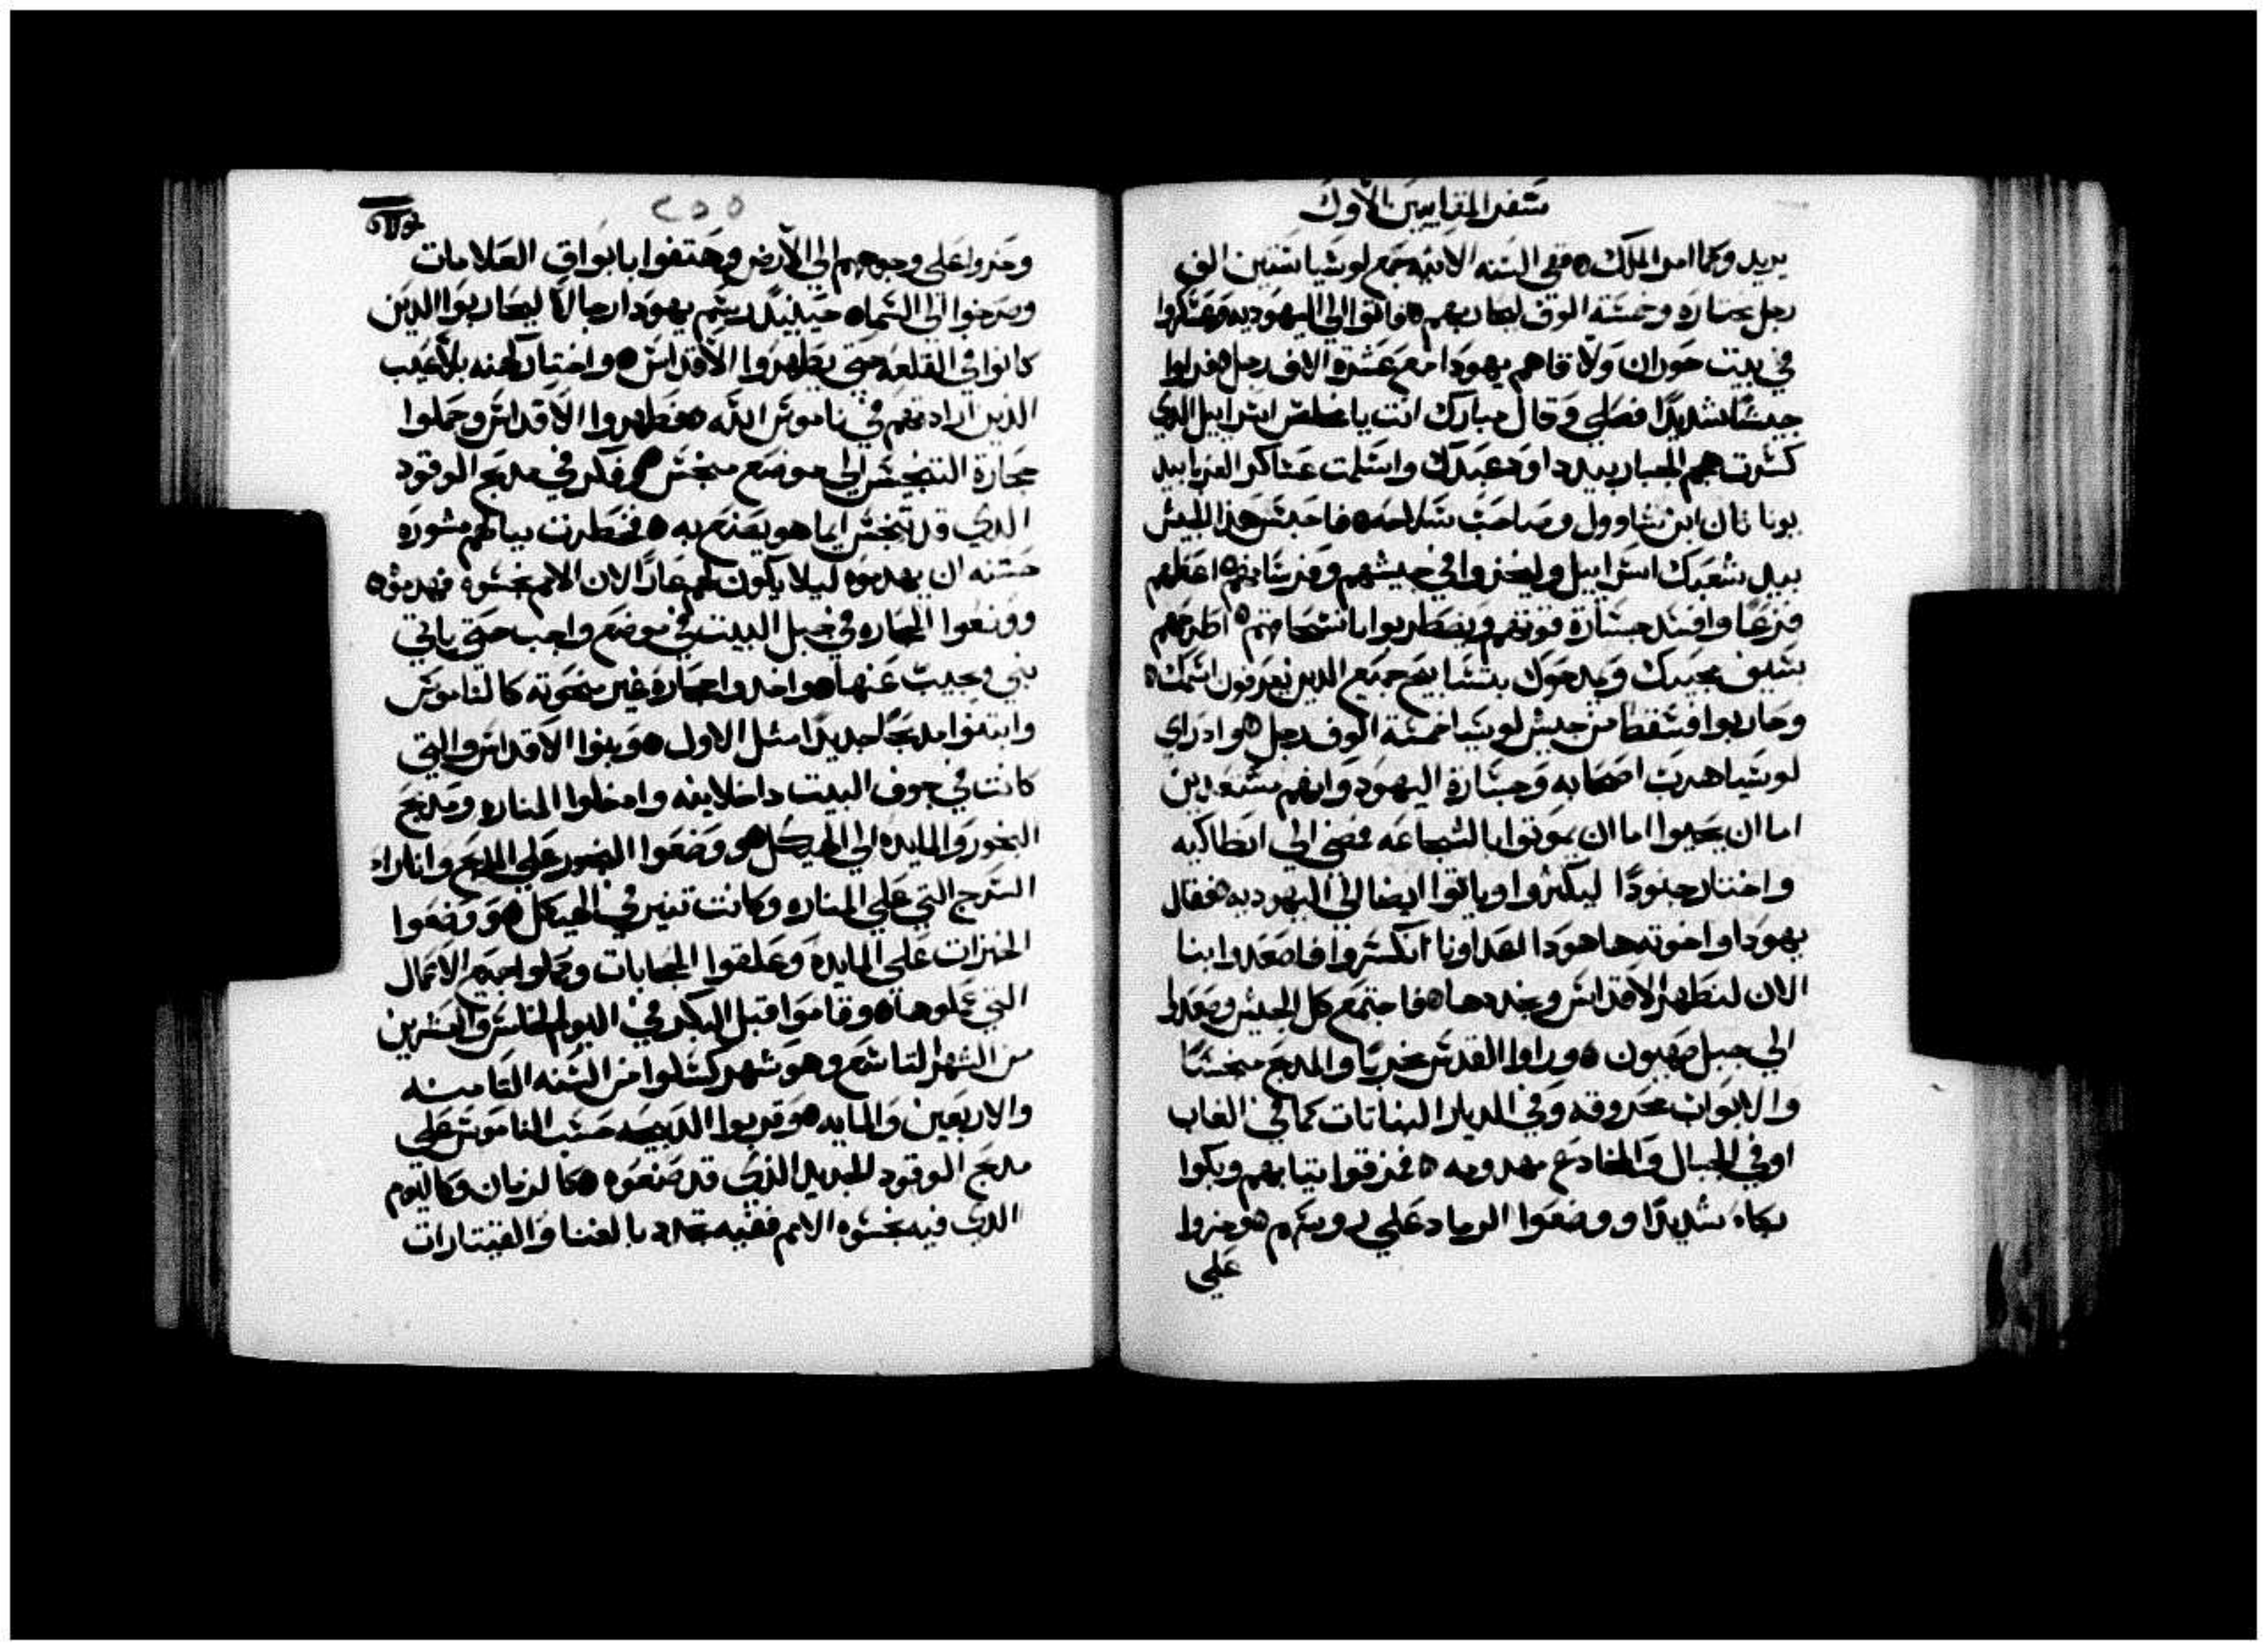 سفر المقابيين الاول
يريد وكما امر الملك ٥ ففي السنه الاتيه جمع لوسيا ستين الف
رجل مختاره وخمسة الوف ليحاربهم ٥ فاتوا الي اليهوديه وعسكروا
في بيت حوران ولاقاهم يهودا مع عشرة الاف رجل ٥ فراوا
جيشا شديدا فصلي وقال مبارك انت يا مخلص اسراييل الدي
كسرت هجم الجبار بيد داود عبدك واسلمت عساكر الغربا بيد
يوناتان ابن شاوول وصاحب سلاحه ٥ فاحبس هذا الجيش
بيد شعبك اسراييل وليخزوا في جيشهم وفرسانهم ٥ اعطهم
فزعا وافسد جسارة قوتهم ويضطربوا بانسحاقهم ٥ اطرحهم
بسيف محبيك ويمدحوك بتسابيح جميع الدين يعرفون اسمك ٥
وحاربوا فسقط من جيش لوسيا خمسة الوف رجل ٥ واد راي
لوسيا هرب اصحابه وجسارة اليهود وانهم مستعدين
اما ان يحيوا اما ان يموتوا بالشجاعه فمضي الي انطاكيه
واختار جنودا ليكثروا وياتوا ايضا الي اليهوديه ٥ فقال
يهودا واخوته ها هودا اعداونا انكسروا فاصعدوا بنا
الان لنطهر الاقداس ونجددها ٥ فاجتمع كل الجيش وصعدوا
الي جبل صهيون ٥ وراوا القدس مخربا والمدبح منجسا
والابواب محروقه وفي الديار النباتات كما في الغاب
او في الجبال والمخادع مهدومه ٥ فمزقوا تيابهم وبكوا
بكاء شديدا ووضعوا الرماد علي روسهم ٥ وخروا
علي
٢٥٥
وخروا علي وجوههم الي الارض وهتفوا بابواق العلامات
وصرخوا الي السماء حينيد رسم يهودا رجالا ليحاربوا الدين
كانوا في القلعه حتي يطهروا الاقداس ٥ واختار كهنه بلا عيب
الذين ارادتهم في ناموس الله ٥ فطهروا الاقداس وحملوا
حجارة التنجيس الي موضع منجس ٥ وفكر في مدبح الوقود
الدي قد تنجس ايما هو يصنع به ٥ فخطرت ببالهم مشوره
حسنه ان يهدموه ليلا يكون لهم عارا لان الامم نجسوه فهدموه ٥
ووضعوا الحجاره في جبل البيت في موضع واجب حتي ياتي
نبي ويجيب عنها ٥ واخدوا حجاره غير منحوته كالناموس
وابتنوا مدبحا جديدا مثل الاول ٥ وبنوا الاقداس والتي
كانت في جوف البيت داخلا وادخلوا المناره ومدبح
البخور والمايده الي الهيكل ٥ ووضعوا البخور علي المدبح واناروا
السرج التي علي المناره وكانت تنير في الهيكل ٥ ووضعوا
الخبزات علي المايده وعلقوا الحجابات وكملوا جميع الاعمال
التي عملوها ٥ وقاموا قبل البكر في اليوم الخامس والعشرين
من الشهر التاسع وهو شهر كسلوا من السنه التامنه
والاربعين والمايه ٥ وقربوا الدبيحه حسب الناموس علي
مدبح الوقود الجديد الذي قد صنعوه ٥ كالزمان وكاليوم
الدي فيه نجسوه الامم ففيه تجدد بالغنا والقيتارات